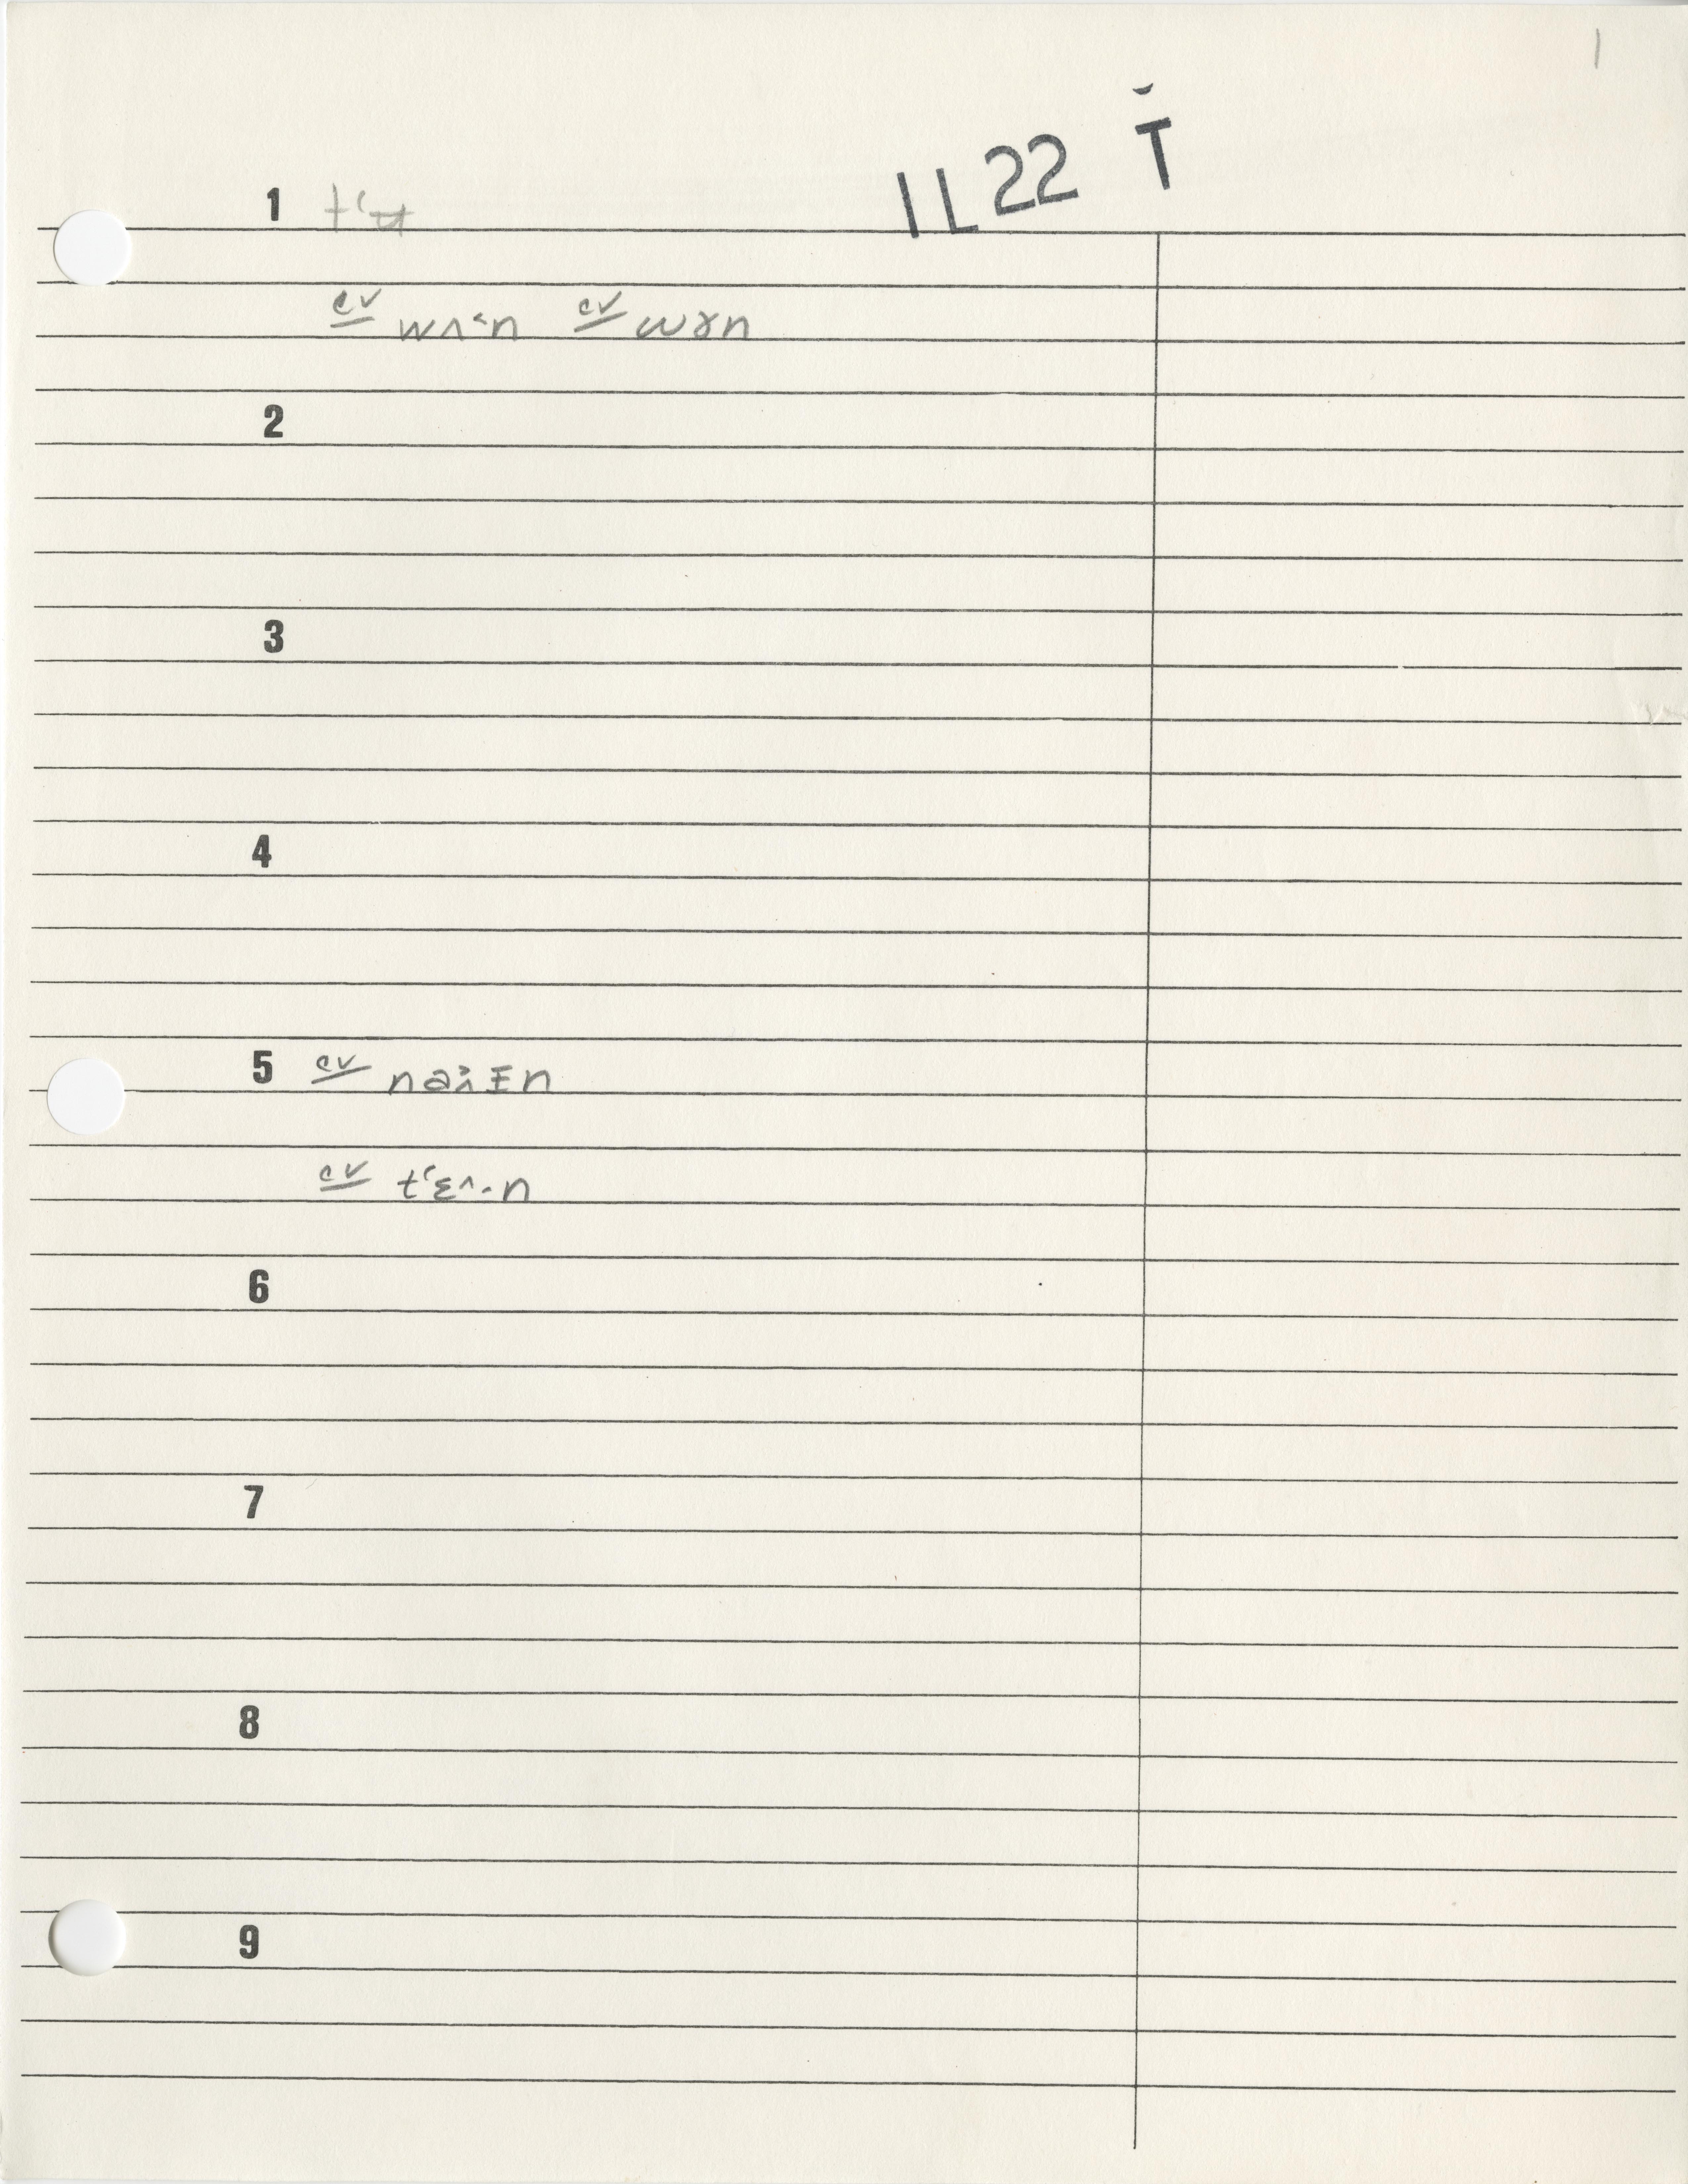 1
IL 22 T̆
1 tʻʉ
cv wʌ˂n cv wɤn
2
3
4
5 cv nəɜ̌ɪn
cv tʻɛ^·n
6
7
8
9